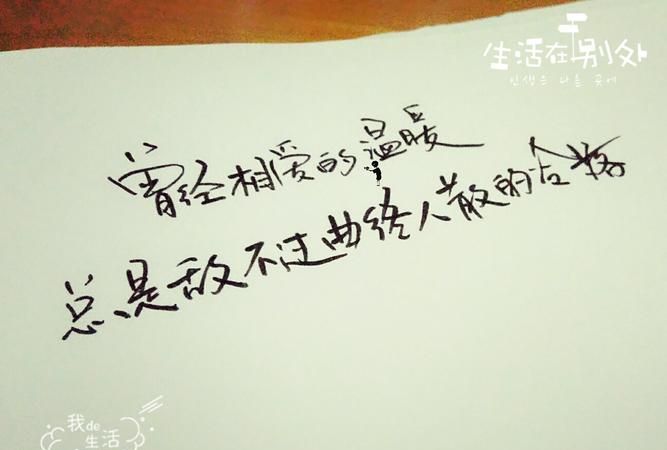 生活在别处
인생은 다른 곳에
曾经相爱的温暖
总是敌不过曲终人散的
我de
生活